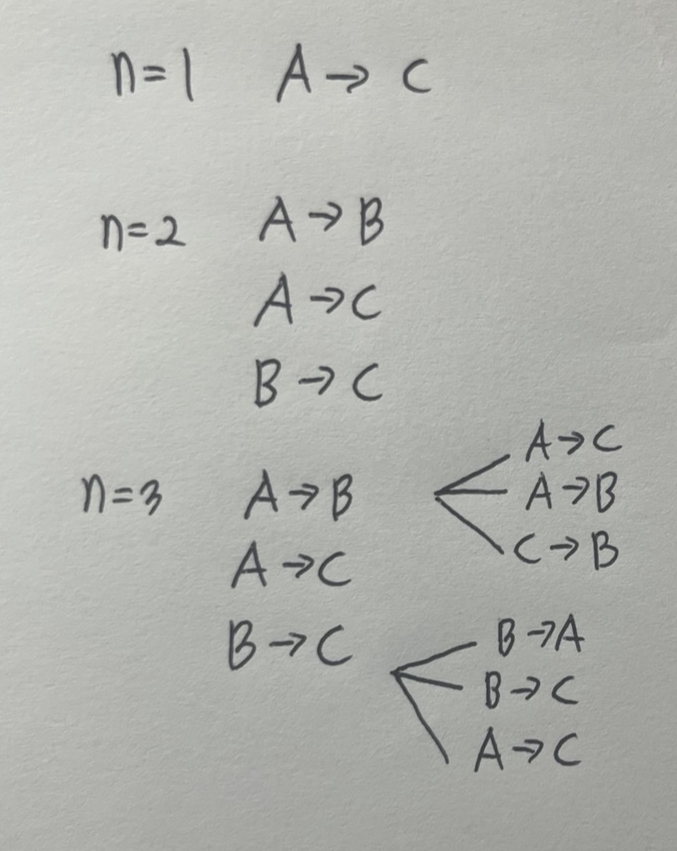 n=1 A→C
n=2 A→B
A→C
B→C
n=3 A→B
A→C
B→C
A→C
A→B
C→B
B→A
B→C
A→C